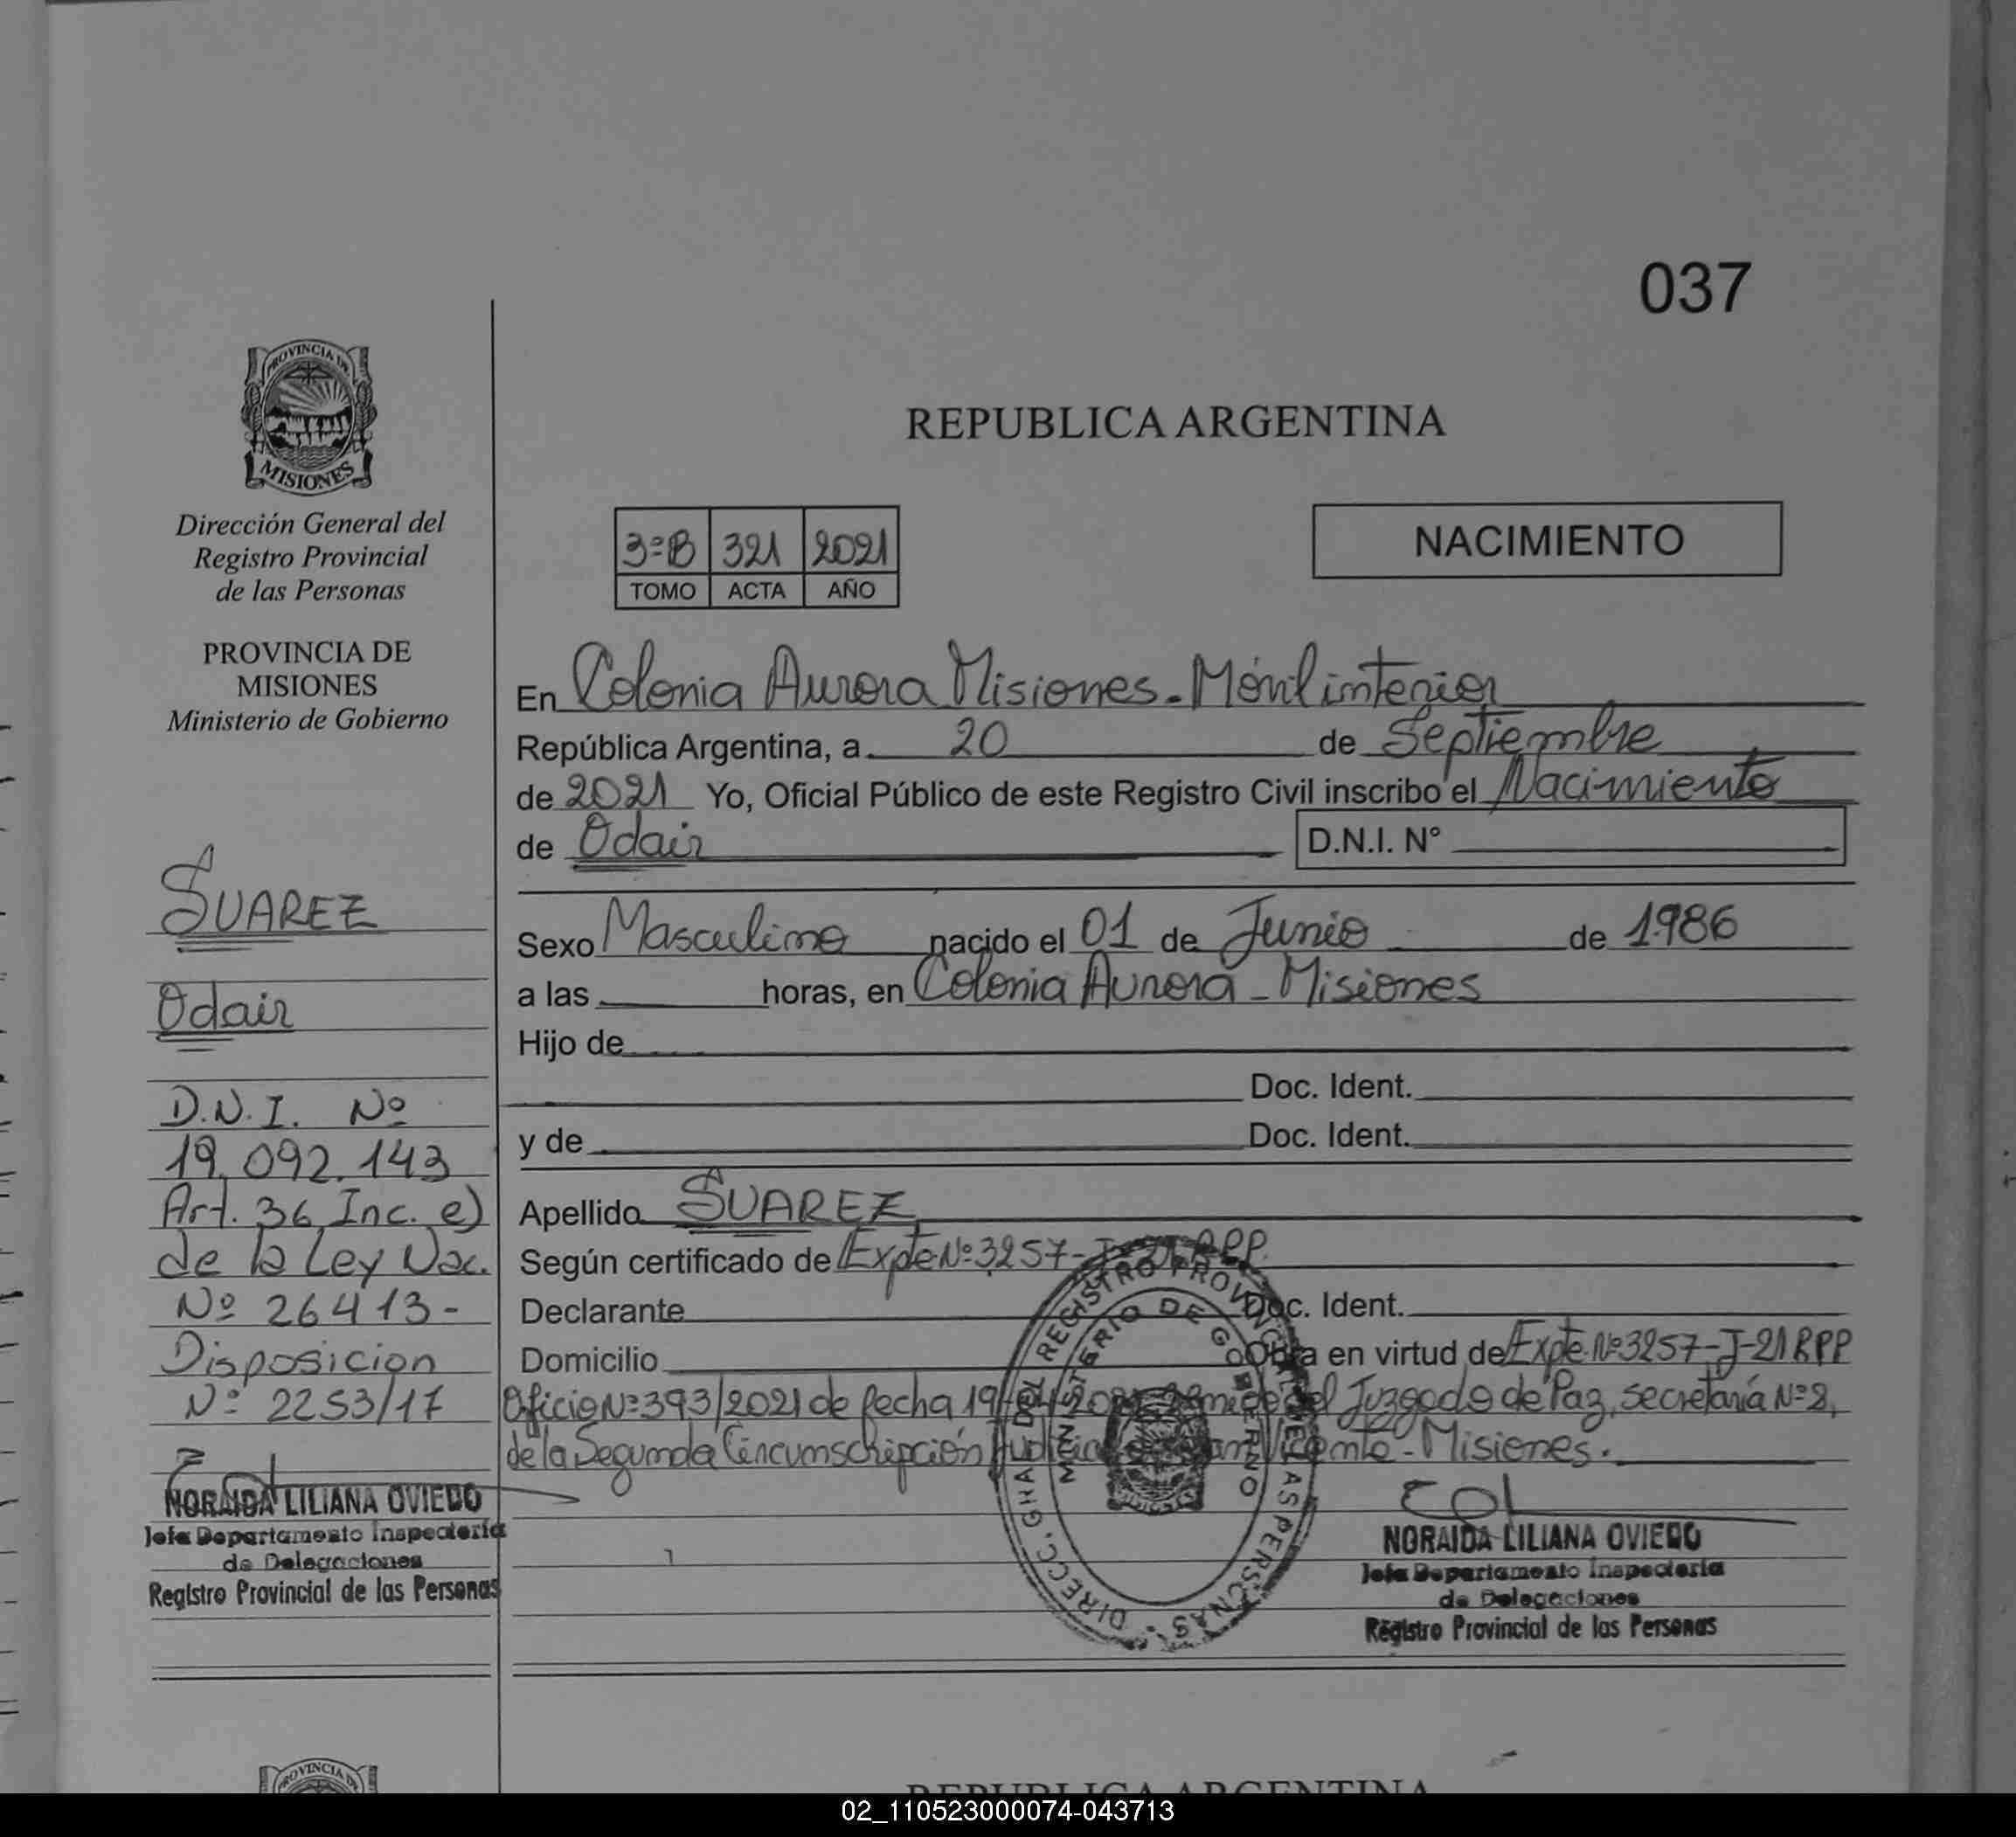 037
PROVINCIA DE
MISIONES
Dirección General del
Registro Provincial
de las Personas
PROVINCIA DE
MISIONES
Ministerio de Gobierno
SUAREZ
Odair
D.N.I. Nº
19.092.143
Art. 36 Inc. e)
de la Ley Nac.
Nº 26413-
Disposicion
Nº 2253/17
NORAIDA LILIANA OVIEDO
Jefa Departamento Inspectoría
de Delegaciones
Registro Provincial de las Personas
REPUBLICA ARGENTINA
3ºB 321 2021
TOMO ACTA AÑO
NACIMIENTO
En Colonia Aurora Misiones - Móvil interior
República Argentina, a 20 de Septiembre
de 2021 Yo, Oficial Público de este Registro Civil inscribo el Nacimiento
de Odair D.N.I. N°
Sexo Masculino nacido el 01 de Junio de 1986
a las horas, en Colonia Aurora - Misiones
Hijo de
Doc. Ident.
y de Doc. Ident.
Apellido SUAREZ
Según certificado de Expte Nº 3257-J-21 RPP
Declarante Doc. Ident.
Domicilio Obra en virtud de Expte. Nº 3257-J-21 RPP
Oficio Nº 393/2021 de fecha 19 del Juzgado de Paz, secretaría Nº 2,
de la Segunda Circunscripción Judicial Vicente - Misiones.
DIRECC. GRAL. DEL REGISTRO PROVINCIAL DE LAS PERSONAS
MINISTERIO DE GOBIERNO
NORAIDA LILIANA OVIEDO
Jefa Departamento Inspectoría
de Delegaciones
Registro Provincial de las Personas
PROVINCIA DE
REPUBLICA ARGENTINA
02_110523000074-043713